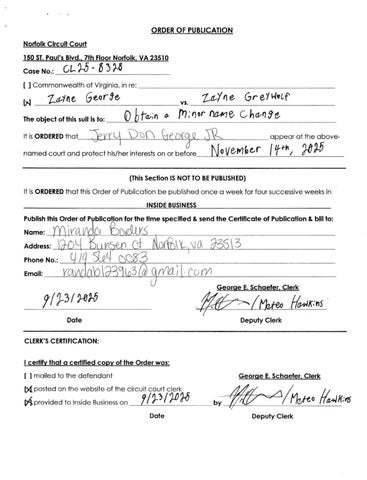 ORDER OF PUBLICATION
Norfolk Circuit Court
150 ST. Paul's Blvd., 7th Floor Norfolk, VA 23510
Case No.: CL25-8328
[ ] Commonwealth of Virginia, in re:
[x] Zayne George vs. Zayne Greywolf
The object of this suit is to: Obtain a Minor name Change
It is ORDERED that Jerry Don George JR appear at the above-
named court and protect his/her interests on or before November 14th, 2025
(This Section IS NOT TO BE PUBLISHED)
It is ORDERED that this Order of Publication be published once a week for four successive weeks in
INSIDE BUSINESS
Publish this Order of Publication for the time specified & send the Certificate of Publication & bill to:
Name: Miranda
Address: 1204 Bunsen Ct Norfolk, va 23513
Phone No.: 419 564 0083
Email: @gmail.com
George E. Schaefer, Clerk
9/23/2025 / Mateo Hawkins
Date Deputy Clerk
CLERK'S CERTIFICATION:
I certify that a certified copy of the Order was:
[ ] mailed to the defendant George E. Schaefer, Clerk
[x] posted on the website of the circuit court clerk
[x] provided to Inside Business on 9/23/2025 by / Mateo Hawkins
Date Deputy Clerk